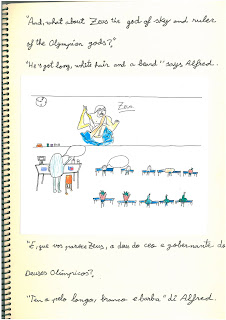 "And, what about Zeus the god of sky and ruler
of the Olympian gods?,"
"He's got long, white hair and a beard" says Alfred.
Zeus
"E, que vos parece Zeus, o deus do ceo e gobernante dos
Deuses Olímpicos?,
"Ten o pelo longo, branco e barba" di Alfred.